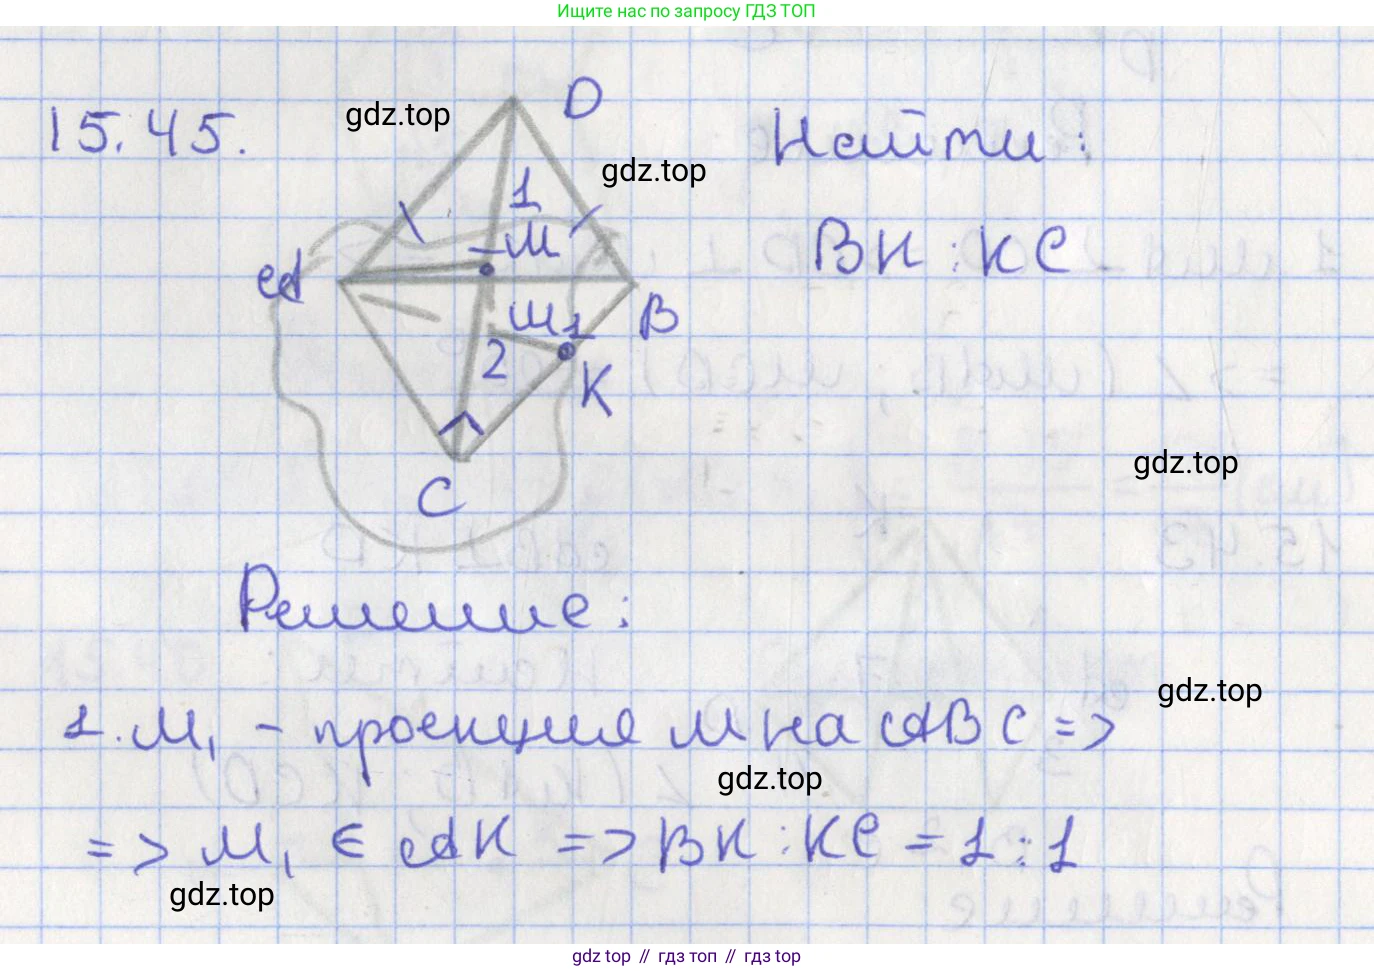 Ищите нас по запросу ГДЗ ТОП
15.45.
gdz.top
D
Найти:
gdz.top
1
M
BK : KC
A
B
M1
2
K
gdz.top
C
Решение:
gdz.top
1. M₁ - проекция M на ABC =>
gdz.top
=> M₁ ∈ AK => BK : KC = 1 : 1
gdz.top
gdz.top // гдз топ // гдз top